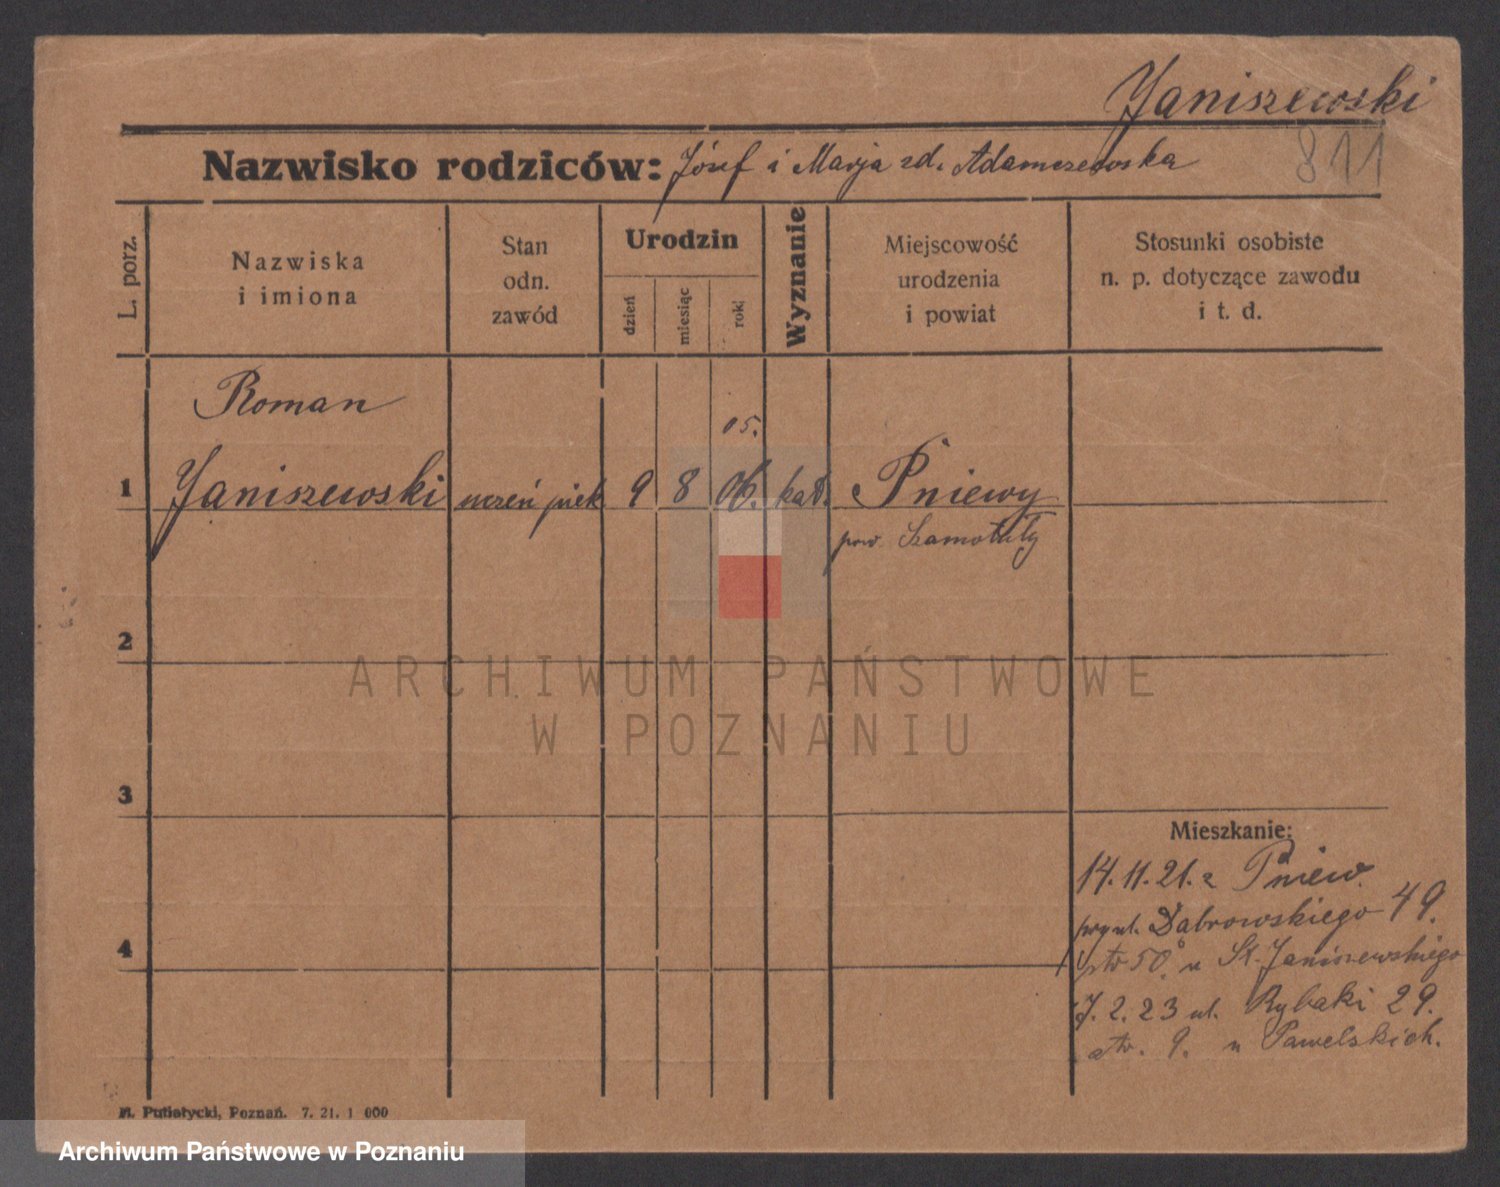 Janiszewski
811
Nazwisko rodziców: Józef i Marja zd. Adamczewska
L. porz.
Nazwiska
i imiona
Stan
odn.
zawód
Urodzin
dzień
miesiąc
rok
Wyznanie
Miejscowość
urodzenia
i powiat
Stosunki osobiste
n. p. dotyczące zawodu
i t. d.
Roman
05.
1 Janiszewski uczeń piek 9 8 06. kat. Pniewy
pow. Szamotuły
2
ARCHIWUM PAŃSTWOWE
W POZNANIU
3
Mieszkanie:
14.11.21. z Pniew.
przy ul. Dąbrowskiego 49.
4
50 u St. Janiszewskiego
7. 2. 23 ul. Rybaki 29.
9. u Pawelskich.
M. Putiatycki, Poznań. 7. 21. 1 000
Archiwum Państwowe w Poznaniu